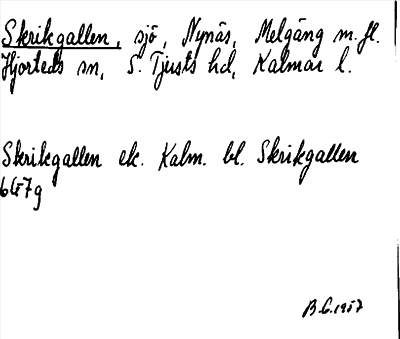 Skrikgallen, sjö, Nynäs, Melgäng m.fl.
Hjorteds sn, S. Tjusts hd, Kalmar l.
Skrikgallen ek. Kalm. bl. Skrikgallen
6G7g
B.G. 1957